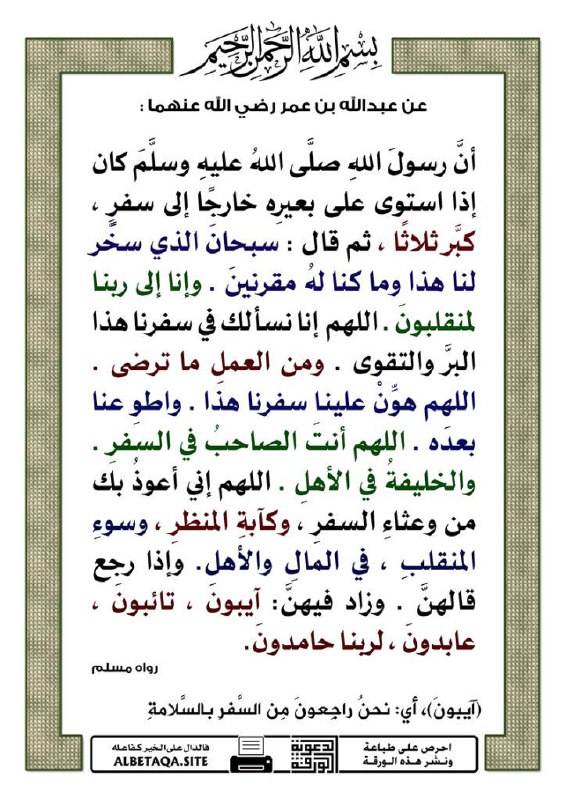 بسم الله الرحمن الرحيم
عن عبدالله بن عمر رضي الله عنهما :
أنَّ رسولَ اللهِ صلَّى اللهُ عليهِ وسلَّمَ كان
إذا استوى على بعيرِه خارجًا إلى سفرٍ ،
كبَّر ثلاثًا ، ثم قال : سبحانَ الذي سخَّر
لنا هذا وما كنا لهُ مقرنينَ . وإنا إلى ربنا
لمنقلبونَ . اللهم إنا نسألك في سفرنا هذا
البرَّ والتقوى . ومن العملِ ما ترضى .
اللهم هوِّنْ علينا سفرنا هذا . واطوِ عنا
بعدَه . اللهم أنتَ الصاحبُ في السفرِ .
والخليفةُ في الأهلِ . اللهم إني أعوذُ بك
من وعثاءِ السفرِ ، وكآبةِ المنظرِ ، وسوءِ
المنقلبِ ، في المالِ والأهلِ. وإذا رجع
قالهنَّ . وزاد فيهنَّ: آيبونَ ، تائبونَ ،
عابدونَ ، لربنا حامدونَ.
رواه مسلم
(آيبونَ)، أي: نحنُ راجِعونَ مِن السَّفرِ بالسَّلامةِ
احرص على طباعة
ونشر هذه الورقـة
الدعوية
الورقة
فالدال على الخير كفاعله
ALBETAQA.SITE